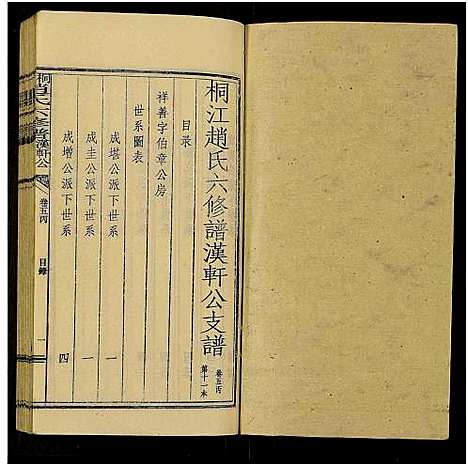 桐江趙氏六修譜漢軒公支譜 卷五丙 第十一本
目录
祥善字伯章公房
世系圖表
成增公派下世系 一
成圭公派下世系 一
成堦公派下世系 四
桐江趙氏六修譜漢軒公支譜
卷五丙
目錄
一